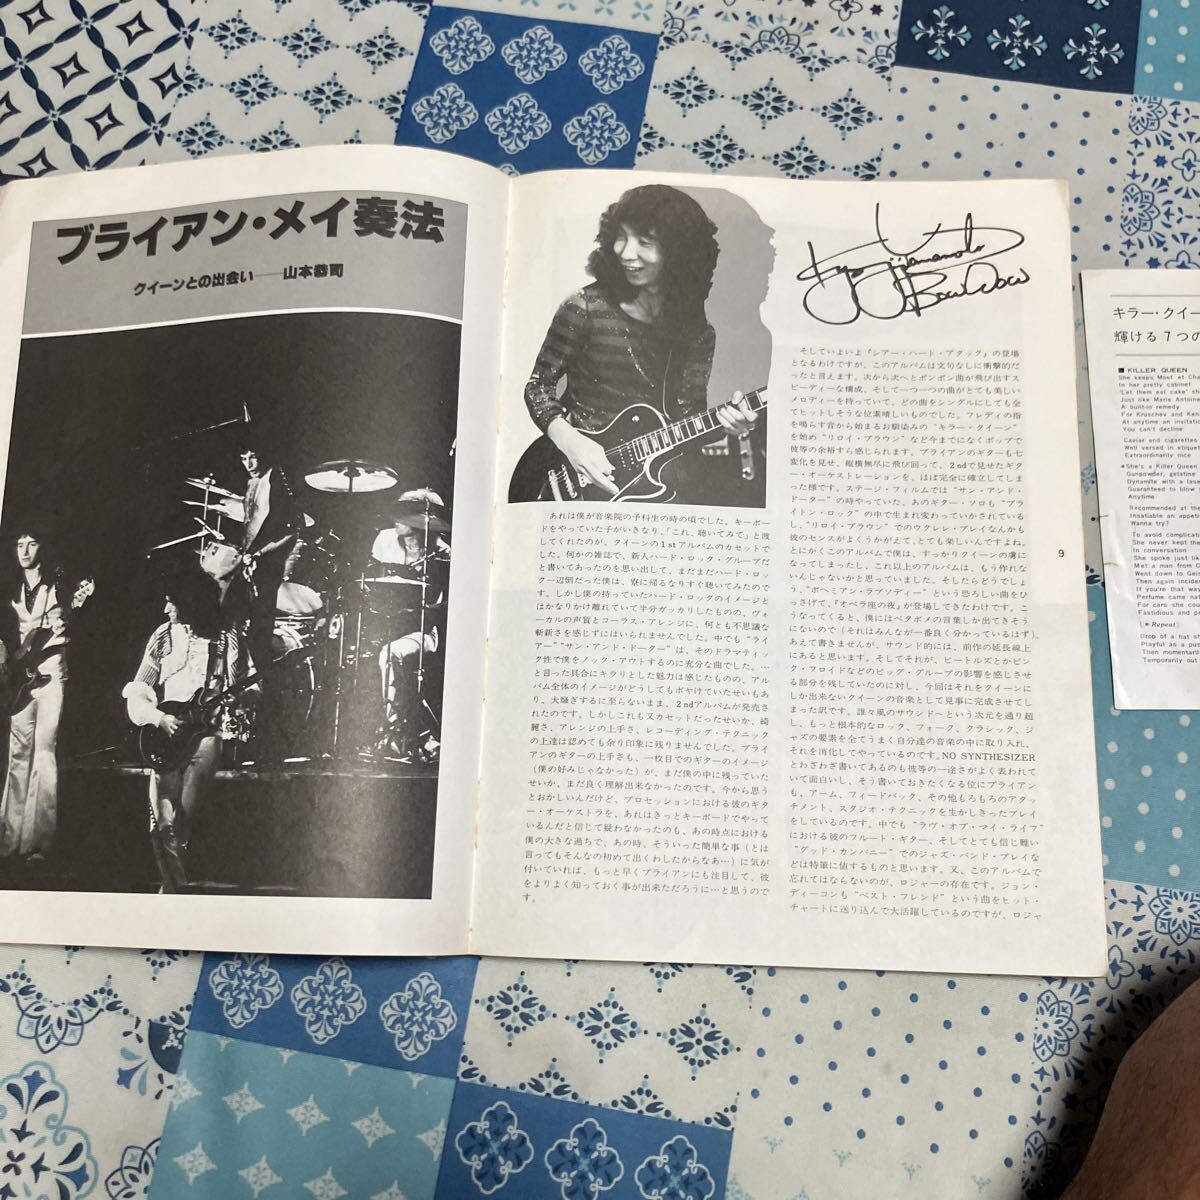 ブライアン・メイ奏法
クイーンとの出会い——山本恭司
Kyoji Yamamoto
BowWow
あれは僕が音楽院の予科生の時の頃でした。キーボー
ドをやっていた子がいきなり、「これ、聴いてみて」と渡
してくれたのが、クイーンの1stアルバムのカセットで
した。何かの雑誌で、新人ハード・ロック・グループだ
と書いてあったのを思い出して、まだまだハード・ロッ
ク一辺倒だった僕は、寮に帰るなりすぐ聴いてみたので
す。しかし僕の持っていたハード・ロックのイメージと
はかなりかけ離れていて半分ガッカリしたものの、ヴォ
ーカルの声質とコーラス・アレンジに、何とも不思議な
斬新さを感じずにはいられませんでした。中でも“ライ
アー”“サン・アンド・ドーター”は、そのドラマティッ
ク性で僕をノック・アウトするのに充分な曲でした。…
と言った具合にキラリとした魅力は感じたものの、アル
バム全体のイメージがどうしてもボヤけていたせいもあ
り、大騒ぎするに至らないまま、2ndアルバムが発売さ
れたのです。しかしこれも又カセットだったせいか、綺
麗さ、アレンジの上手さ、レコーディング・テクニック
の上達は認めても余り印象に残りませんでした。ブライ
アンのギターの上手さも、一枚目でのギターのイメージ
（僕の好みじゃなかった）が、まだ僕の中に残っていた
せいか、まだ良く理解出来なかったのです。今から思う
とおかしいんだけど、プロセッションにおける彼のギタ
ー・オーケストラを、あれはきっとキーボードでやって
いるんだと信じて疑わなかったのも、あの時点における
僕の大きな過ちで、あの時、そういった簡単な事（とは
言ってもそんなの初めて出くわしたからなあ…）に気が
付いていれば、もっと早くブライアンにも注目して、彼
をよりよく知っておく事が出来ただろうに…と思うので
す。
そしていよいよ『シアー・ハート・アタック』の登場
となるわけですが、このアルバムは文句なしに衝撃的だ
ったと言えます。次から次へとポンポン曲が飛び出すス
ピーディーな構成、そして一つ一つの曲がとても美しい
メロディーを持っていて、どの曲をシングルにしても全
てヒットしそうな位素晴しいものでした。フレディの指
を鳴らす音から始まるお馴染みの“キラー・クイーン”
を始め“リロイ・ブラウン”など今までになくポップで
彼等の余裕すら感じられます。ブライアンのギターも七
変化を見せ、縦横無尽に飛び回って、2ndで見せたギタ
ー・オーケストレーションを、ほぼ完全に確立してしま
った様です。ステージ・フィルムでは“サン・アンド・
ドーター”の時やっていた、あのギター・ソロも“ブラ
イトン・ロック”の中で生まれ変わっていかされている
し、“リロイ・ブラウン”でのウクレレ・プレイなんかも
彼のセンスがよくうかがえて、とても楽しいんですよね。
とにかくこのアルバムで僕は、すっかりクイーンの虜に
なってしまったし、これ以上のアルバムは、もう作れな
いんじゃないかと思っていました。そしたらどうでしょ
う、“ボヘミアン・ラプソディー”という恐ろしい曲をひ
っさげて、『オペラ座の夜』が登場してきたわけです。こ
うなってくると、僕にはベタボメの言葉しか出てきそう
にないので（それはみんなが一番良く分かっているはず）、
あえて書きませんが、サウンド的には、前作の延長線上
にあると思います。そしてそれが、ビートルズとかピン
ク・フロイドなどのビッグ・グループの影響を感じさせ
る部分を残していたのに対し、今回はそれをクイーンに
しか出来ないクイーンの音楽として見事に完成させてし
まった訳です。誰々風のサウンドーという次元を通り超
し、もっと根本的なロック、フォーク、クラシック、ジ
ャズの要素を全てうまく自分達の音楽の中に取り入れ、
それを消化してやっているのです。NO SYNTHESIZER
とわざわざ書いてあるのも彼等の一途さがよく表われて
いて面白いし、そう書いておきたくなる位にブライアン
も、アーム、フィードバック、その他もろもろのアタッ
チメント、スタジオ・テクニックを生かしきったプレイ
をしているのです。中でも“ラヴ・オブ・マイ・ライフ”
における彼のフルート・ギター、そしてとても信じ難い
“グッド・カンパニー”でのジャズ・バンド・プレイな
どは特筆に値するものと思います。又、このアルバムで
忘れてはならないのが、ロジャーの存在です。ジョン・
ディーコンも“ベスト・フレンド”という曲をヒット・
チャートに送り込んで大活躍しているのですが、ロジャ
9
キラー・クイー
輝ける7つの
■ KILLER QUEEN
She keeps Moet et Cha
In her pretty cabinet
'Let them eat cake' sh
Just like Marie Antoine
A builton remedy
For Kruschev and Ken
At anytime an invitatio
You can't decline
Caviar and cigarettes
Well versed in etiquet
Extraordinarily nice
＊She's a Killer Queen
Gunpowder, gelatine
Dynamite with a lase
Guaranteed to blow
Anytime
Recommended at the
Insatiable an appetit
Wanna try?
To avoid complicatio
She never kept the
In conversation
She spoke just lik
Met a man from C
Went down to Geis
Then again incide
If you're that way
Perfume came nat
For cars she cou
Fastidious and pr
(＊Repeat)
Drop of a hat sh
Playful as a pus
Then momentaril
Temporarily out